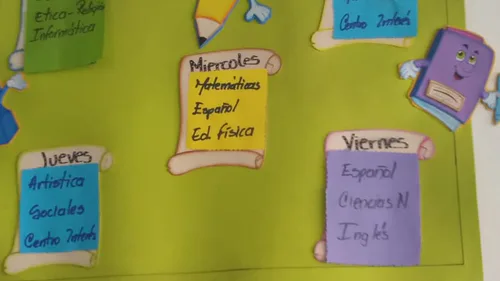 Etica - Religión
Informática
Centro Interés
Miercoles
Matemáticas
Español
Ed. física
Jueves
Artistica
Sociales
Centro Interés
Viernes
Español
Ciencias N
Inglés